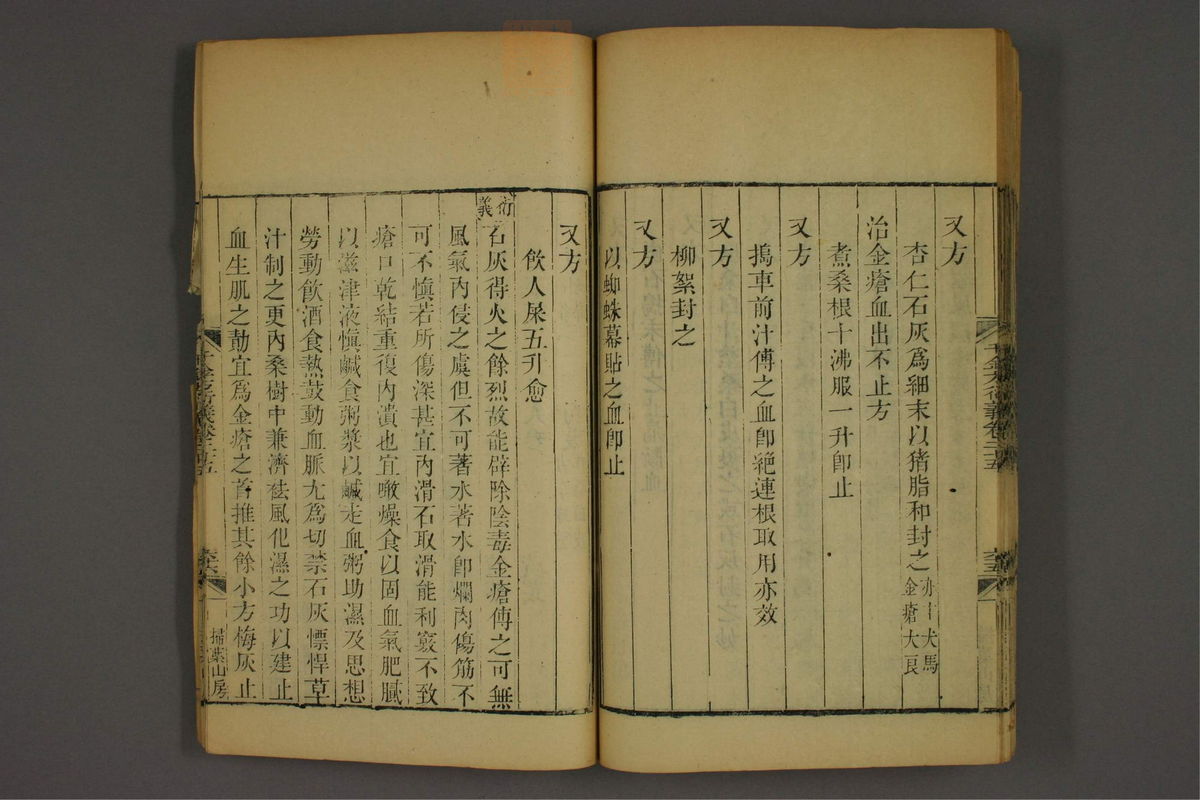 又方
杏仁石灰爲細末以猪脂和封之亦主犬馬
金瘡大良
治金瘡血出不止方
煮桑根十沸服一升卽止
又方
搗車前汁傅之血卽絕連根取用亦效
又方
柳絮封之
又方
以蜘蛛幕貼之血卽止
又方
飲人尿五升愈
衍義
石灰得火之餘烈故能辟除陰毒金瘡傅之可無
風氣內侵之虞但不可著水著水卽爛肉傷筋不
可不慎若所傷深甚宜內滑石取滑能利竅不致
瘡口乾結重復內潰也宜噉燥食以固血氣肥膩
以滋津液慎鹹食粥漿以鹹走血粥助濕及思想
勞動飲酒食熱鼓動血脈尤爲切禁石灰慓悍草
汁制之更內桑樹中兼濟祛風化濕之功以建止
血生肌之勣宜爲金瘡之首推其餘小方梅灰止
千金方衍義卷二十五
掃葉山房